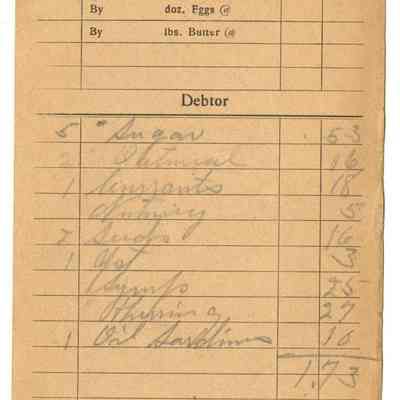 By doz. Eggs @
By lbs. Butter @
Debtor
5 " Sugar .53
2 " Oatmeal 16
1 " Currants 18
Nutmeg 5
2 16
1 3
25
27
1 Oil Sardines 10
1.73